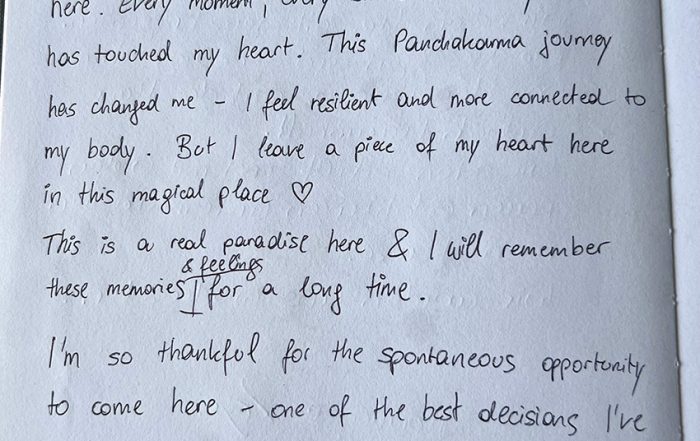 here. Every moment, every
has touched my heart. This Panchakarma journey
has changed me – I feel resilient and more connected to
my body. But I leave a piece of my heart here
in this magical place ♡
This is a real paradise here & I will remember
& feelings
these memories for a long time.
I'm so thankful for the spontaneous opportunity
to come here – one of the best decisions I've